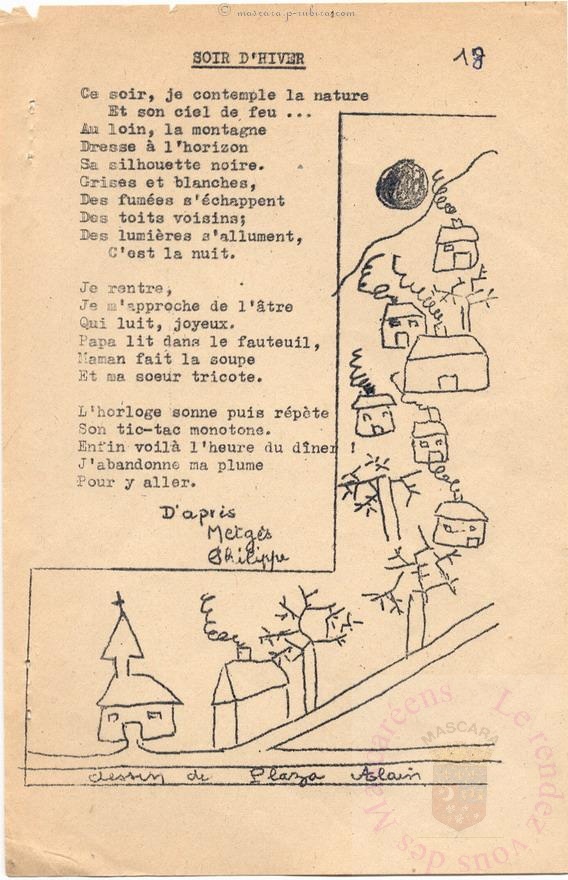 © mascara.p-rubira.com
SOIR D'HIVER
18
Ce soir, je contemple la nature
Et son ciel de feu ...
Au loin, la montagne
Dresse à l'horizon
Sa silhouette noire.
Grises et blanches,
Des fumées s'échappent
Des toits voisins;
Des lumières s'allument,
C'est la nuit.
Je rentre,
Je m'approche de l'âtre
Qui luit, joyeux.
Papa lit dans le fauteuil,
Maman fait la soupe
Et ma soeur tricote.
L'horloge sonne puis répète
Son tic-tac monotone.
Enfin voilà l'heure du dîner !
J'abandonne ma plume
Pour y aller.
D'apris
Metges
Philippe
dessin de Plaza Alain
Le rendez vous des Mascaréens
MASCARA